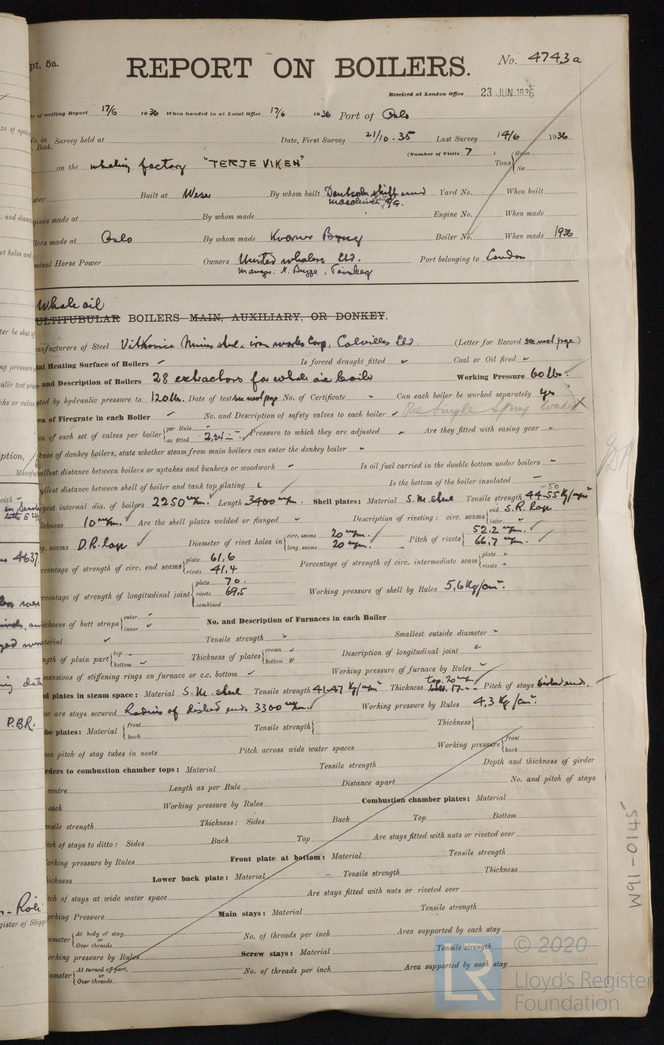 pt. 5a.
REPORT ON BOILERS.
No. 4743a
Received at London Office 23 JUN 1936
of writing Report 17/6 1936 When handed in at Local Office 17/6 1936 Port of Oslo
Survey held at Date, First Survey 21/10-35 Last Survey 14/6 1936
Book. (Number of Visits 7 )
on the whaling factory "TERJE VIKEN" Tons Gross Net
Built at Weser By whom built Deutsche Schiff und Maschinen A/G. Yard No. When built
made at By whom made Engine No. When made
made at Oslo By whom made Kvaerner Brug Boiler No. When made 1936
Horse Power Owners United Whalers Ltd. Port belonging to London
Manager N. Bugge, Tønsberg
Whale oil
MULTITUBULAR BOILERS MAIN, AUXILIARY, OR DONKEY.
Manufacturers of Steel Corp, Colvilles Ltd. (Letter for Record see next page)
Heating Surface of Boilers Is forced draught fitted Coal or Oil fired
and Description of Boilers 28 extractors for whale oil Working Pressure 60 lbs.
by hydraulic pressure to 120 lbs. Date of test see next page No. of Certificate Can each boiler be worked separately yes
of Firegrate in each Boiler No. and Description of safety valves to each boiler One Single Spring loaded
of each set of valves per boiler per Rule as fitted Pressure to which they are adjusted Are they fitted with easing gear
case of donkey boilers, state whether steam from main boilers can enter the donkey boiler
smallest distance between boilers or uptakes and bunkers or woodwork Is oil fuel carried in the double bottom under boilers
smallest distance between shell of boiler and tank top plating Is the bottom of the boiler insulated
largest internal dia. of boilers 2250 m/m. Length 3400 m/m. Shell plates: Material S.M. steel Tensile strength 44-55 Kg/mm²
-50
thickness 10 m/m. Are the shell plates welded or flanged Description of riveting: circ. seams end S.R. lap inter.
long. seams D.R. lap Diameter of rivet holes in circ. seams 20 m/m. long. seams 20 m/m. Pitch of rivets 52.2 m/m. 66.7 m/m.
percentage of strength of circ. end seams plate 61.6 rivets 41.4 Percentage of strength of circ. intermediate seam plate rivets
percentage of strength of longitudinal joint plate 70. rivets 69.5 combined Working pressure of shell by Rules 5,6 Kg/cm².
thickness of butt straps outer inner No. and Description of Furnaces in each Boiler
Material Tensile strength Smallest outside diameter
Length of plain part top bottom Thickness of plates crown bottom Description of longitudinal joint
Dimensions of stiffening rings on furnace or c.c. bottom Working pressure of furnace by Rules
End plates in steam space: Material S.M. steel Tensile strength 41-47 Kg/mm² Thickness top. 20 m/m 17 Pitch of stays dished ends.
How are stays secured Radius of dished ends 3300 m/m. Working pressure by Rules 4,3 Kg/cm².
Tube plates: Material front back Tensile strength Thickness
Mean pitch of stay tubes in nests Pitch across wide water spaces Working pressure front back
Girders to combustion chamber tops: Material Tensile strength Depth and thickness of girder
centre Length as per Rule Distance apart No. and pitch of stays
each Working pressure by Rules Combustion chamber plates: Material
Tensile strength Thickness: Sides Back Top Bottom
Pitch of stays to ditto: Sides Back Top Are stays fitted with nuts or riveted over
Working pressure by Rules Front plate at bottom: Material Tensile strength
Thickness Lower back plate: Material Tensile strength Thickness
Pitch of stays at wide water space Are stays fitted with nuts or riveted over
Working Pressure Main stays: Material Tensile strength
Diameter At body of stay, or Over threads No. of threads per inch Area supported by each stay
Working pressure by Rules Screw stays: Material Tensile strength
Diameter At turned off part, or Over threads No. of threads per inch Area supported by each stay
4637
P.BR.
W91-0145
© 2020
LR
Lloyd's Register
Foundation